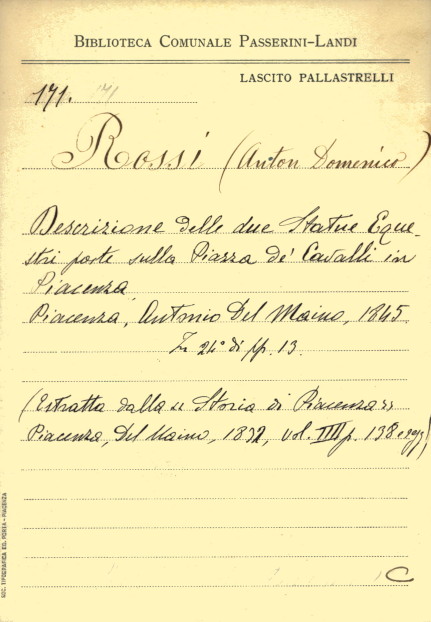 BIBLIOTECA COMUNALE PASSERINI-LANDI
LASCITO PALLASTRELLI
171. 171
Rossi (Anton Domenico)
Descrizione delle due Statue Eque-
stri poste sulla Piazza de' Cavalli in
Piacenza
Piacenza, Antonio Del Maino, 1845
In 24° di pp. 13.
(Estratta dalla « Storia di Piacenza »
Piacenza, Del Maino, 1832, vol. IIII p. 138 e segg)
C
SOC. TIPOGRAFICA ED. PORTA - PIACENZA